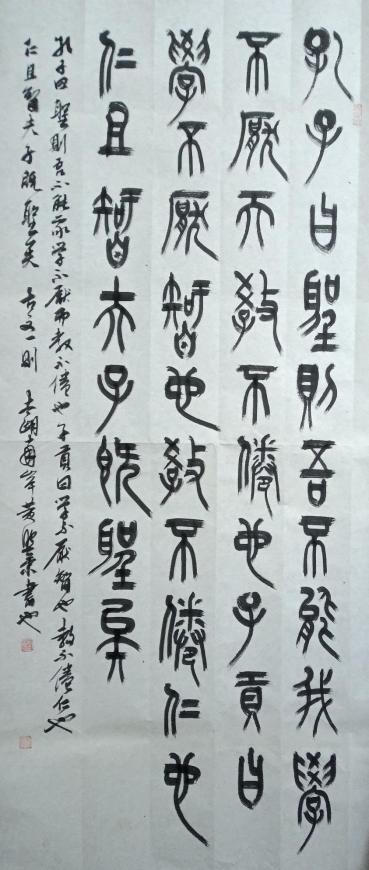 孔子曰聖則吾不能我學
不厭而教不倦也子貢曰
學不厭智也教不倦仁也
仁且智夫子既聖矣
孔子曰聖則吾不能我学不厭而教不倦也子貢曰学不厭智也教不倦仁也
仁且智夫子既聖矣 古文一則 太湖南岸黄 書也